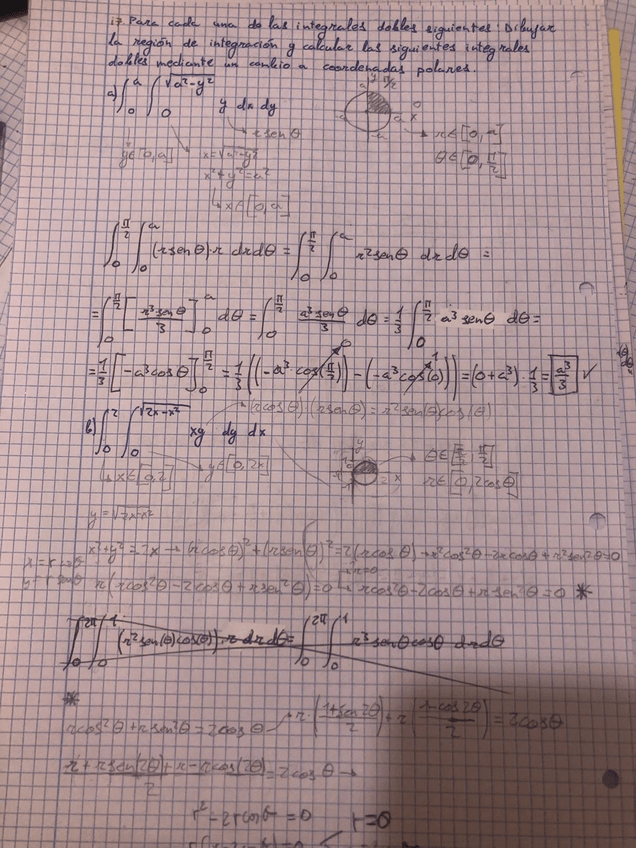 17. Para cada una de las integrales dobles siguientes: Dibujar
la región de integración y calcular las siguientes integrales
dobles mediante un cambio a coordenadas polares.
a) ∫₀^a ∫₀^√(a²-y²) y dx dy
r sen θ
y∈[0,a]
x=√(a²-y²)
x²+y²=a²
x∈[0,a]
r∈[0,a]
θ∈[0,π/2]
∫₀^(π/2) ∫₀^a (r sen θ)·r dr dθ = ∫₀^(π/2) ∫₀^a r² sen θ dr dθ =
= ∫₀^(π/2) [r³ sen θ / 3]₀^a dθ = ∫₀^(π/2) a³ sen θ / 3 dθ = 1/3 ∫₀^(π/2) a³ sen θ dθ =
= 1/3 [-a³ cos θ]₀^(π/2) = 1/3 ((-a³ · cos(π/2)) - (-a³ cos(0))) = (0+a³) · 1/3 = a³/3 ✓
(r cos θ)·(r sen θ) = r² sen(θ) cos(θ)
b) ∫₀² ∫₀^√(2x-x²) xy dy dx
x∈[0,2]
y∈[0,2x]
r∈[0,2cosθ]
y=√(2x-x²)
x²+y²=2x → (r cos θ)²+(r sen θ)²=2(r cos θ) → r²cos²θ-2r cos θ+r²sen²θ=0
y=r sen θ
r=0
r(r cos²θ-2cos θ+r sen²θ)=0 → r cos²θ-2cos θ+r sen²θ=0 *
∫₀^2π ∫₀^1 (r² sen(θ) cos(θ)) r dr dθ = ∫₀^2π ∫₀^1 r³ sen θ cos θ dr dθ
*
r cos²θ+r sen²θ=2cos θ → r·((1+sen 2θ)/2)+r((1-cos 2θ)/2)=2cos θ
(r+r sen(2θ)+r-r cos(2θ))/2=2cos θ →
r²-2r cos θ=0 r=0